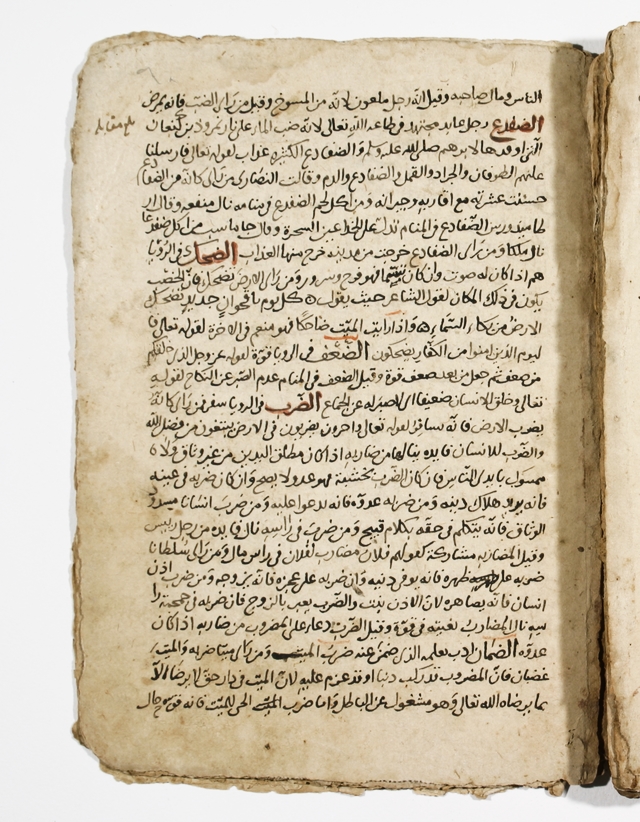 الناس ومال صاحبه وقيل انه رجل ملعون لانه من المسوخ وقيل من راى الضب فانه يمرض
الضفدع رجل عابد مجتهد فى طاعه الله تعالى لانه صب الماء على نار نمرود بن كنعان
التى اوقدها لابرهم صلى الله عليه وسلم والضفادع الكثيره عذاب لقوله تعالى فارسلنا
عليهم الطوفان والجراد والقمل والضفادع والدم وقالت النصارى من راى كانه مع الضفادع
حسنت عشرته مع اقاربه وجيرانه ومن اكل لحم الضفدع فى منامه نال منفعه وقال
الضفادع فى المنام تدل على الخداعين السحرة وقال جاماسب من كلم ضفدعا
نال ملكا ومن راى الضفادع خرجت من مدينه خرج منها العذاب الضحك فى الرؤيا
هم اذا كان له صوت وان كان تبسما فهو فرح وسرور ومن راى الارض تضحك فان الخصب
يكون فى ذلك المكان لقول الشاعر حيث يقول كل يوم باقحوان جديد تضحك
الارض من بكاء السماء واذا رايت الميت ضاحكا فهو منعم فى الاخرة لقوله تعالى فا
ليوم الذين امنوا من الكفار يضحكون الضعف فى الرويا قوة لقوله عز وجل الذى خلقكم
من ضعف ثم جعل من بعد ضعف قوة وقيل الضعف فى المنام عدم الصبر عن النكاح لقوله
تعالى وخلق الانسان ضعيفا اى لا صبر له عن الجماع الضرب فى الرويا سفر فمن راى كانه
يضرب الارض فانه يسافر لقوله تعالى واخرون يضربون فى الارض يبتغون من فضل الله
والضرب للانسان فايده ينالها من ضاربه اذا كان مطلق اليدين من غير وثاق ولا
ممسوك بايدى الناس فان كان الضرب بخشبة فهو عدو لا يصح وان كان ضربه فى عينه
فانه يريد هلاك دينه ومن ضربه عدوه فانه يدعوا عليه ومن ضرب انسانا مسدود
الوثاق فانه يتكلم فى حقه بكلام قبيح ومن ضرب فى راسه نال فايده من رجل رئيس
وقيل المضاربه مشاركة كقولهم فلان مضارب لفلان فى راس مال ومن راى سلطانا
ضربه على ظهره فانه يوفى دينه وان ضربه على عجزه فانه يزوجه ومن ضرب اذن
انسان فانه يصاهره لان الاذن بنت والضرب يعبر بالزوج فان ضربه فى جمجمة را
سه نال المضارب بغيته فى قوة وقيل الضرب دعا على المضروب من ضاربه اذا كان
عدوه الضمان ادب يعلمه الذى ضمن عنه ضرب الميت ومن راى ميتا ضربه والميت
غضبان فان المضروب قد ذنب دنبا او قد عزم عليه لان الميت فى دار حق لا يرضا الا
بما يرضاه الله تعالى وهو مشغول عن الباطل واما ضرب الحى للميت فانه قوى حال